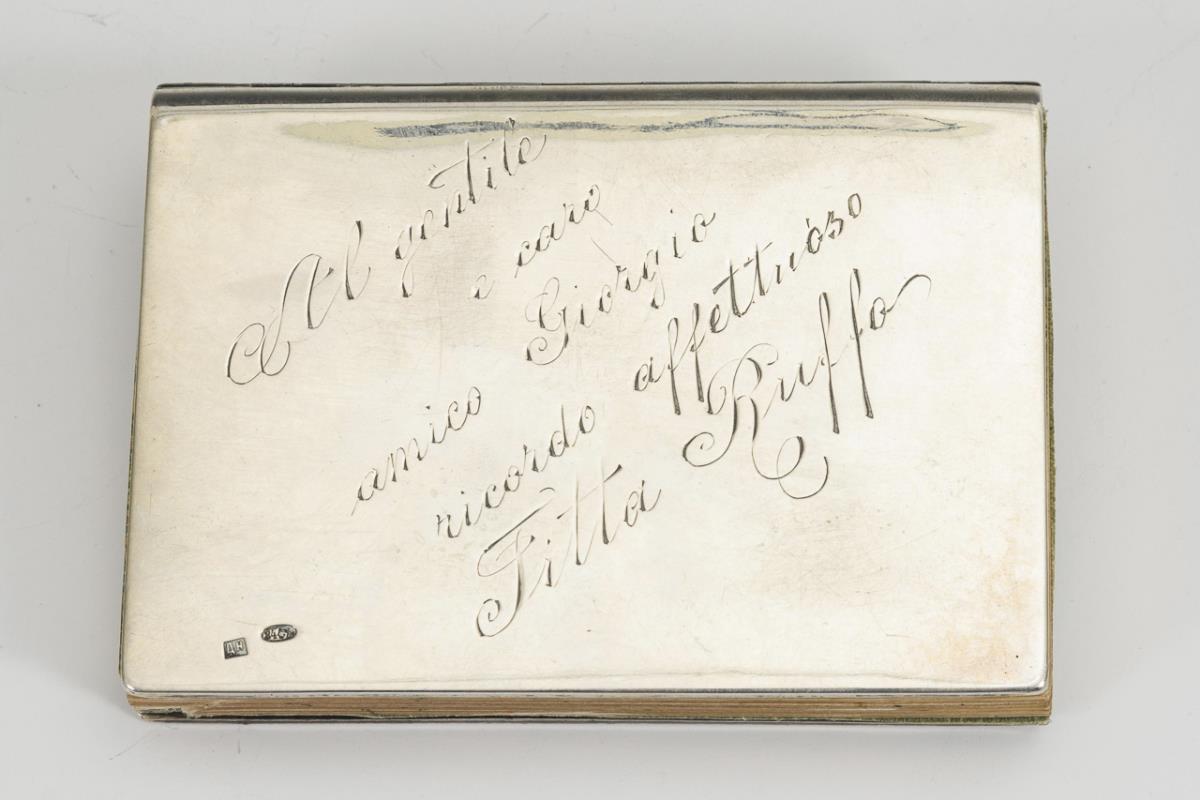 Al gentile
e caro
amico Giorgio
ricordo affettuoso
Titta Ruffo